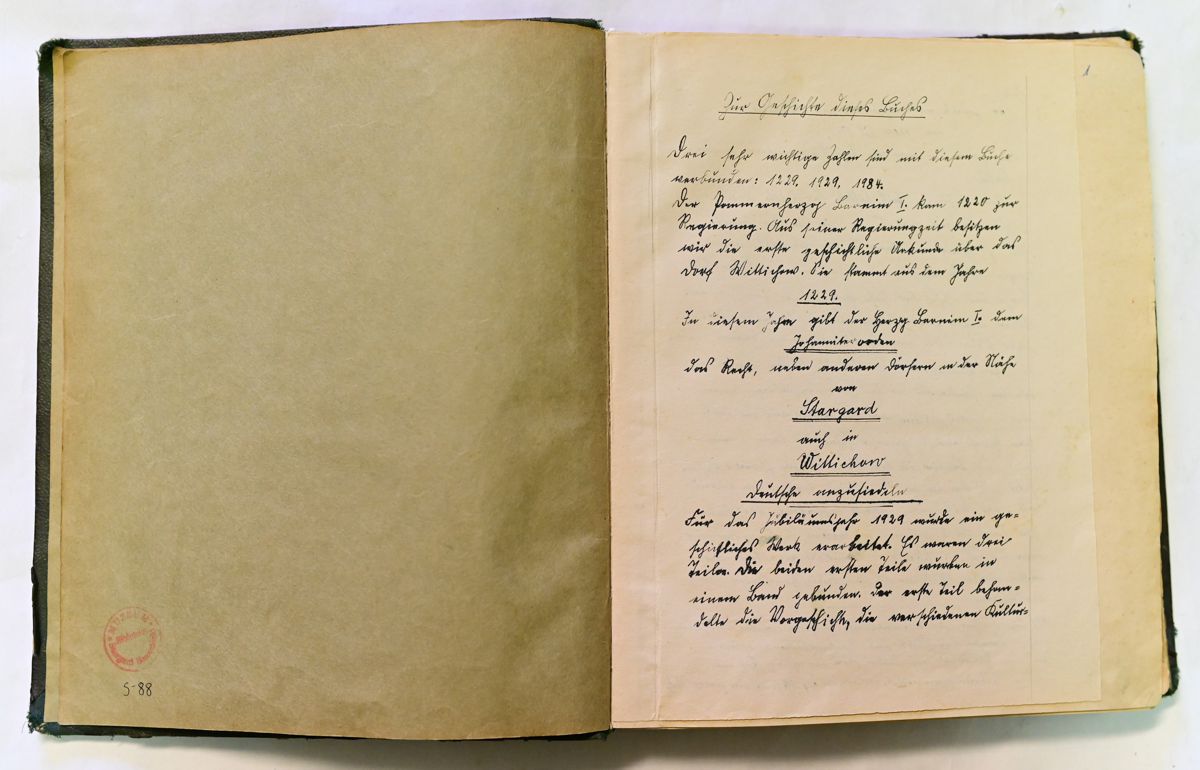 S-88
1
Zur Geschichte dieses Buches
Drei sehr wichtige Zahlen sind mit diesem Buche
verbunden: 1229. 1929. 1984.
Der Pommernherzog Barnim I. kam 1220 zur
Regierung. Aus seiner Regierungzeit besitzen
wir die erste geschichtliche Urkunde über das
Dorf Wittichow. Sie stammt aus dem Jahre
1229.
In diesem Jahre gibt der Herzog Barnim I. dem
Johanniterorden
das Recht, neben anderen Dörfern in der Nähe
von
Stargard
auch in
Wittichow
Deutsche anzusiedeln
Für das Jubiläumsjahr 1929 wurde ein ge=
schichtliches Werk erarbeitet. Es waren drei
Teile. Die beiden ersten Teile wurden in
einem Band gebunden. Der erste Teil behan=
delte die Vorgeschichte, die verschiedenen Kultur=